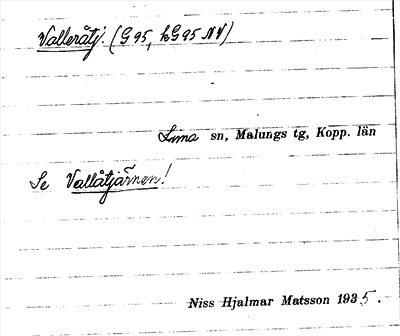 Valleråtj. (G95, kG95 NV)
Lima sn, Malungs tg, Kopp. län
Se Vallåtjärnen!
Niss Hjalmar Matsson 1935.